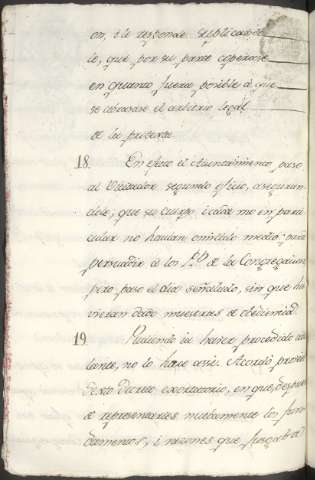 on, i le responde suplicandole
le, que por su parte cooperase
en quanto fuera posible à que
se abrasase el arbitrio legal
de la protesta.
18. En efecto el Ayuntamiento paso
al Visitador segundo oficio, aseguran
dole, que su cuerpo, i cada uno en parti
cular no havian omitido medio para
persuadir à los Ps. de la Congregacion
pero paso el dia señalado, sin que hu
viesen dado muestras de obediencia.
19. Pudiendo in haver procedido ade
lante, no lo hace assi. Acordó provid.
de otro Decreto exortatorio, en que, despues
de representarles nuebamente los fun
damentos, i razones que forzaban